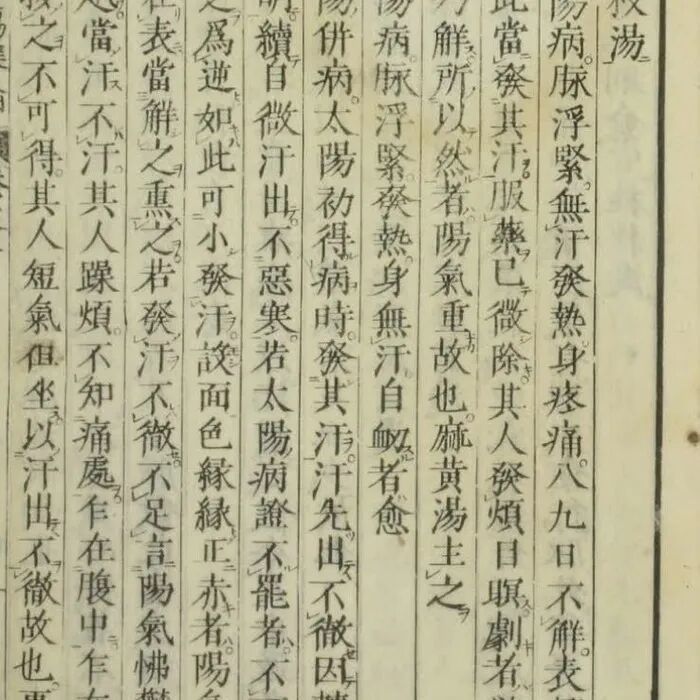 湯
陽病脉浮緊無汗發熱身疼痛八九日不解表
此當發其汗服藥已微除其人發煩目瞑劇者
乃解所以然者陽氣重故也麻黃湯主之
陽病脉浮緊發熱身無汗自衂者愈
陽併病太陽初得病時發其汗汗先出不徹因
續自微汗出不惡寒若太陽病證不罷者不
之爲逆如此可小發汗設面色緣緣正赤者陽
在表當解之熏之若發汗不徹不足言陽氣怫
當汗不汗其人躁煩不知痛處乍在腹中乍
之不可得其人短氣但坐以汗出不徹故也